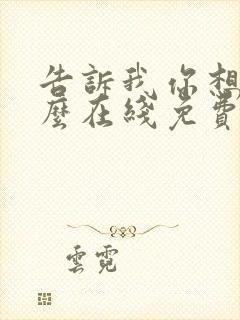 告訴我你想
麼在綫免費
雲霓